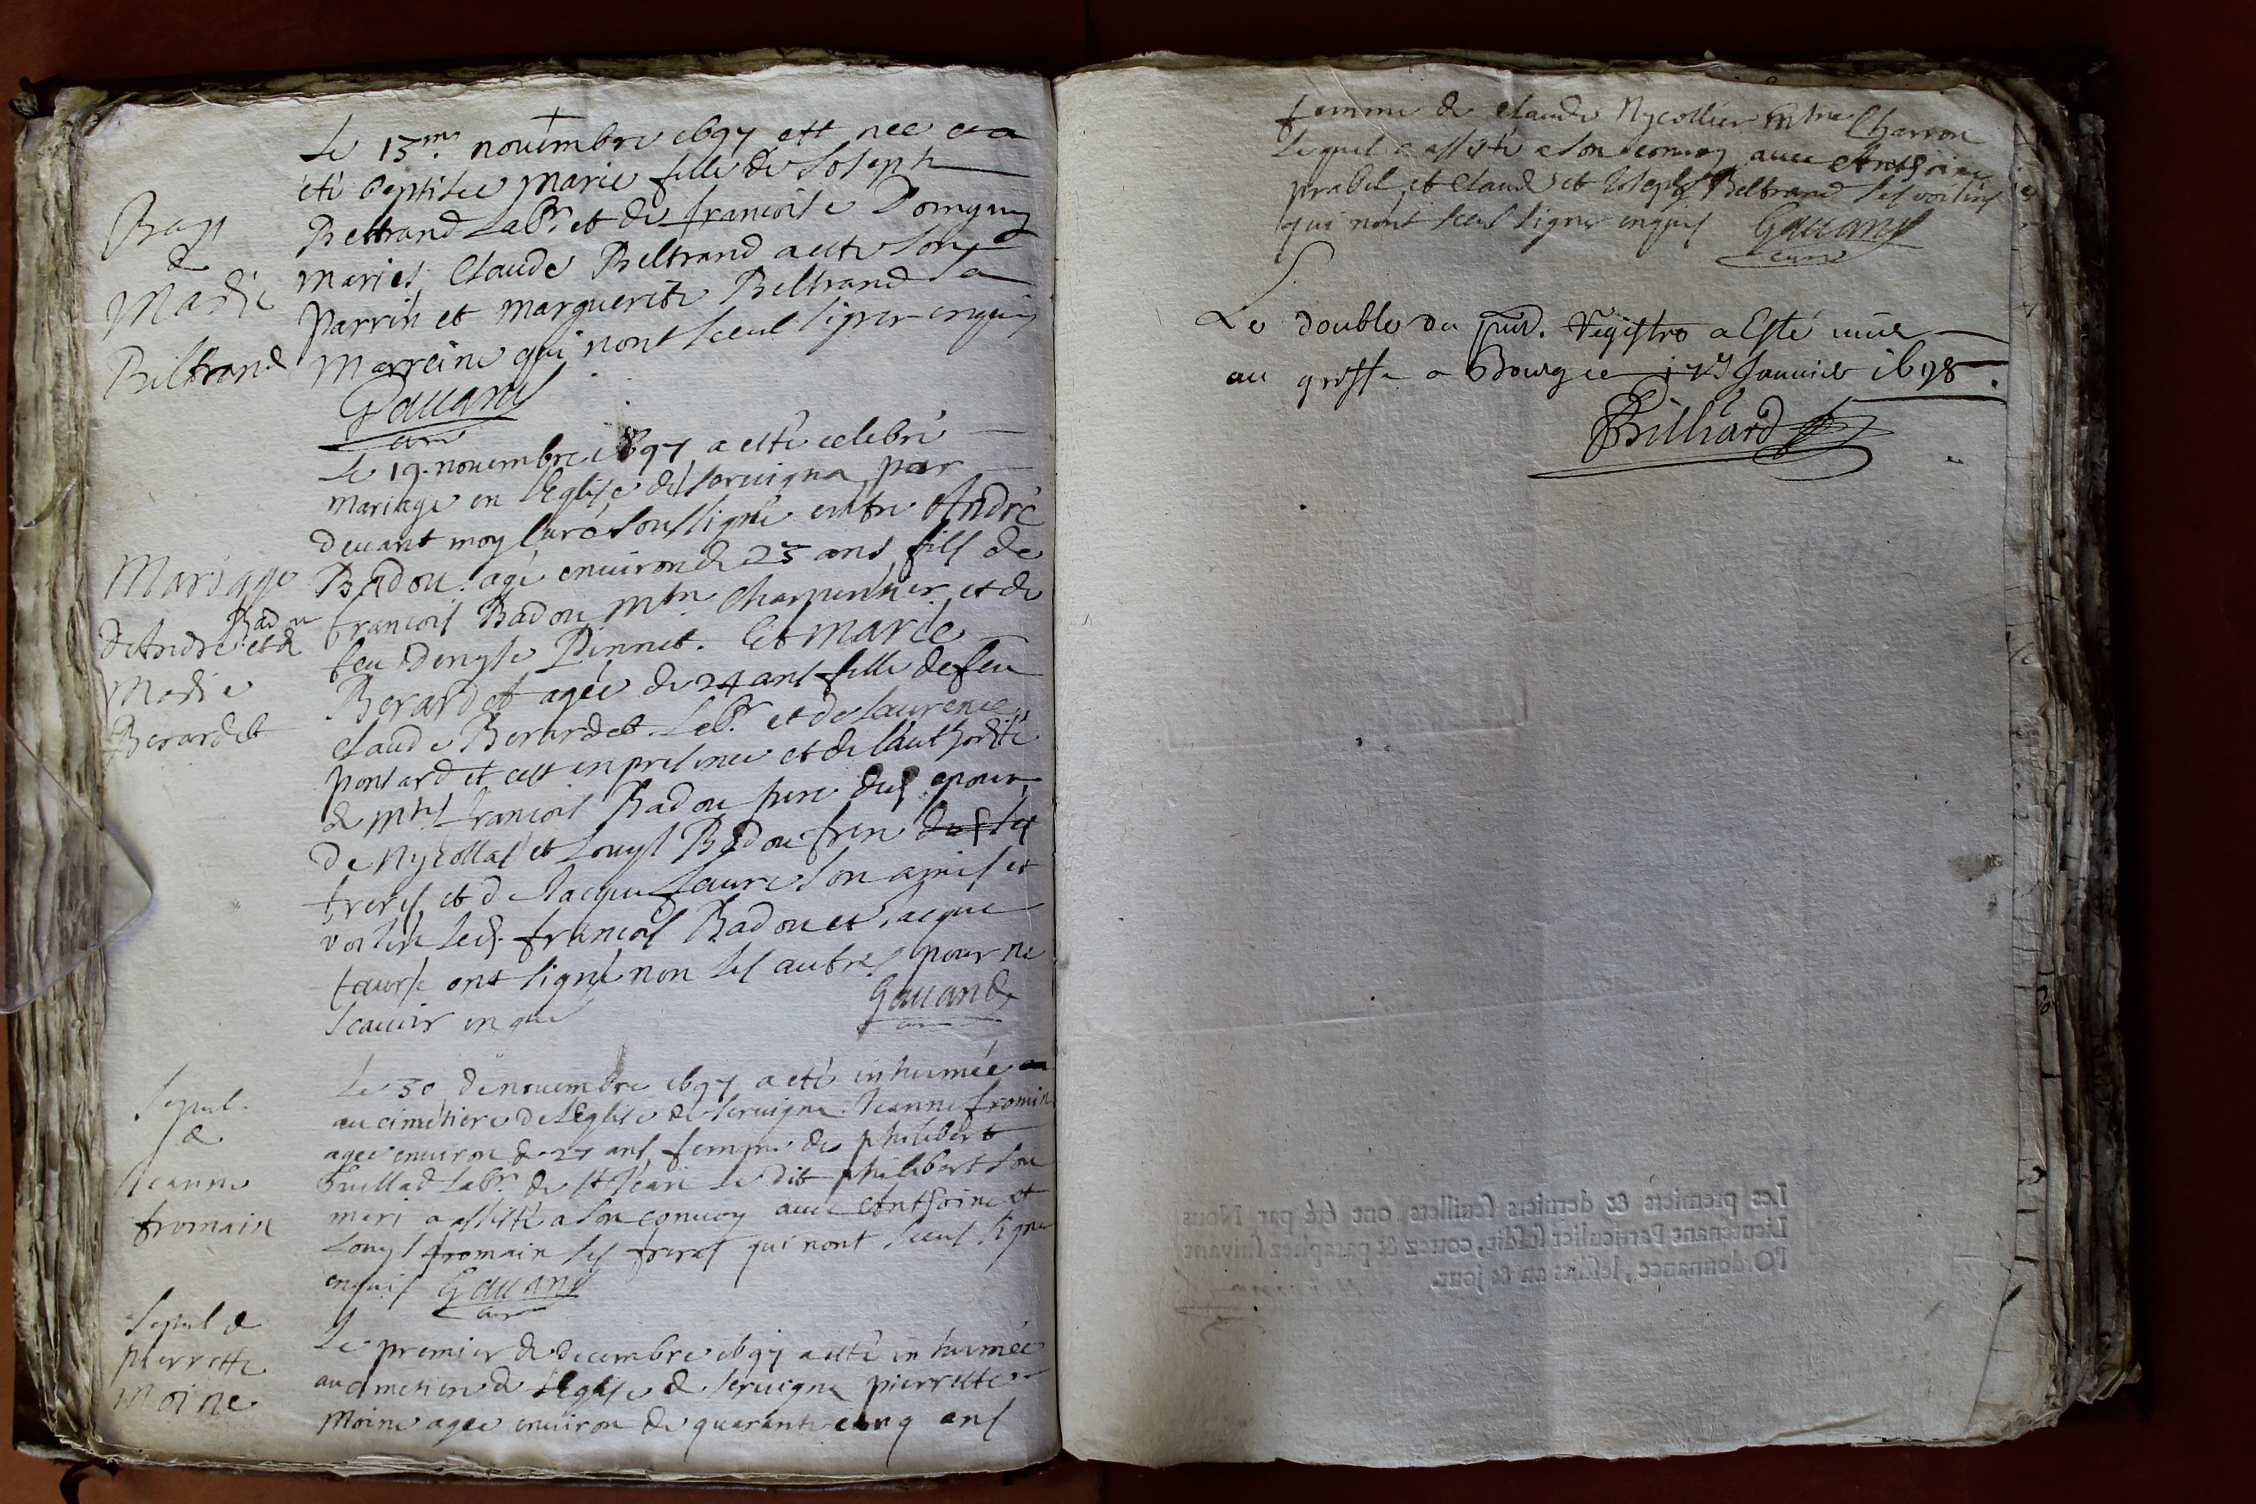 Bap
de
Marie
Beltrand
Le 15me novembre 1697 est née et a
été baptisée marie fille de Joseph
Beltrand Labr. et de francoise Domguy
maries, Claude Beltrand a eté son
parrin et marguerite Beltrand sa
marreine qui nont sceus signer enquis
Gauand
curé
Mariage
de André Badou et de
Marie
Berardet
Le 19. novembre 1697 a esté celebré
mariage en l'Eglise de seruigna par
deuant moy Curé soussigné entre André
Badou agé enuiron de 25 ans fils de
francois Badou mtre Charpentier et de
feu Denyse Pinnet. Et Marie
Berardet agée de 24 ans fille de feu
Claude Berardet Labr. et de laurence
ponsard et cest en presence et de l'authorité
de mtre francois Badou pere dud. epoux
de Nycollas et Louys Badou frere ses
freres, et de Jacque faure son amis et
voisin led. francois Badou et Jacque
faure ont signé non les autres pour ne
scauoir enquis
Gauand
curé
Sepul.
de
Jeanne
fromain
Le 30 de nouembre 1697 a eté inhumée
au cimetiere de l'Eglise de seruigna Jeanne fromain
agée enuiron de 27 ans femme de philibert
Guillad Labr. de st Jean le dit philibert son
mari a assisté a son conuoy auec Anthoine et
Louys fromain ses freres qui nont sceus signer
enquis Gauand
curé
Sepul de
pierrette
Moine
Le premier de decembre 1697 a esté inhumée
au cimetiere de l'Eglise de seruigna pierrette
Moine agée enuiron de quarante cinq ans
femme de Claude Nycollier mtre Charron
lequel a assisté a son conuoy auec Anthoine
prabel et Claude et Joseph Beltrand ses voisins
qui nont sceus signer enquis Gauand
curé
Le double du pnt. Registre a Esté mis
au greffe a Bourg ce Januier 1698.
Billiard
Les premiers & derniers feuillets ont été par Nous
Lieutenant Particulier susdit, cottez & paraphez suivant
l'Ordonnance, lesdits an & jour.